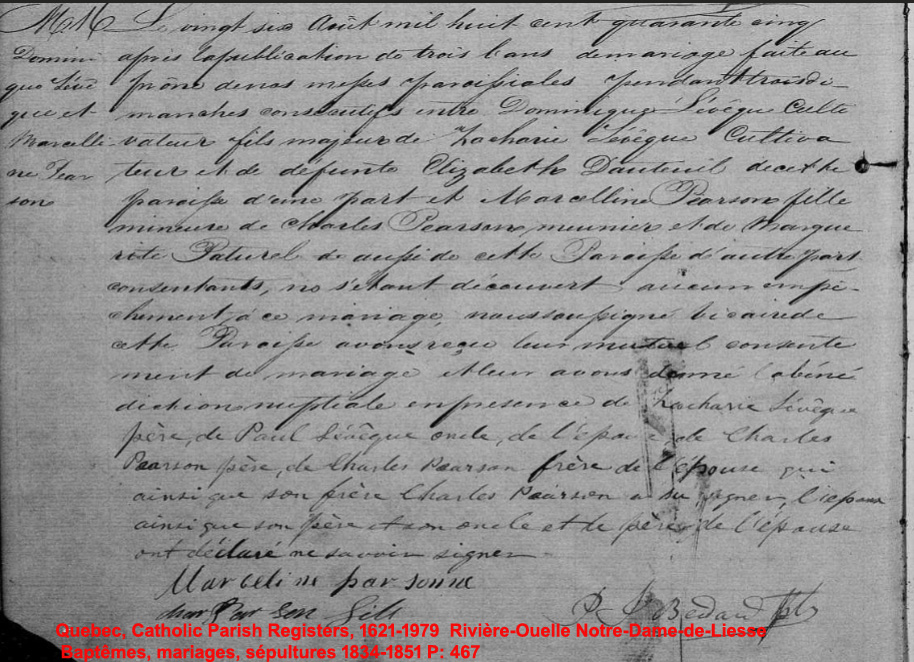 Le vingt six Août mil huit cent quarante cinq
après la publication de trois bans de mariage faite au
prône de nos messes paroissiales pendant trois di-
manches consécutifs entre Dominique Lévêque Culti
vateur fils majeur de Zacharie Lévêque Cultiva
teur et de défunte Elizabeth Dauteuil de cette
paroisse d'une part et Marcelline Pearson fille
mineure de Charles Pearson, meunier et de Margue
rite Paturel de aussi de cette Paroisse d'autre part
consentants, ne s'étant découvert aucun empê-
chement à ce mariage, nous soussigné vicaire de
cette Paroisse avons reçu leur mutuel consente
ment de mariage et leur avons donné la béné
diction nuptiale en présence de Zacharie Lévêque
père, de Paul Lévêque oncle, de l'époux, de Charles
Pearson père, de Charles Pearson frère de l'épouse qui
ainsi que son frère Charles Pearson a su signer, l'époux
ainsi que son père et son oncle et le père de l'épouse
ont déclaré ne savoir signer
Domini
que Lévê
que et
Marcelli
ne Pear
son
Marceline parsonne
fils
Bedard Ptr
Quebec, Catholic Parish Registers, 1621-1979 Rivière-Ouelle Notre-Dame-de-Liesse
Baptêmes, mariages, sépultures 1834-1851 P: 467